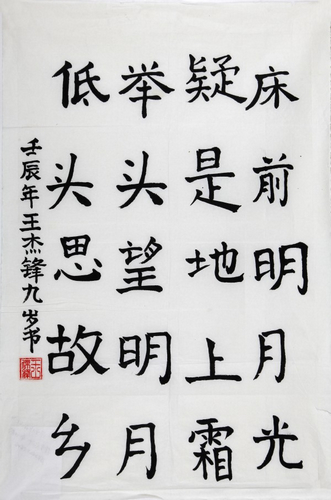 床前明月光
疑是地上霜
举头望明月
低头思故乡
壬辰年王杰锋九岁书